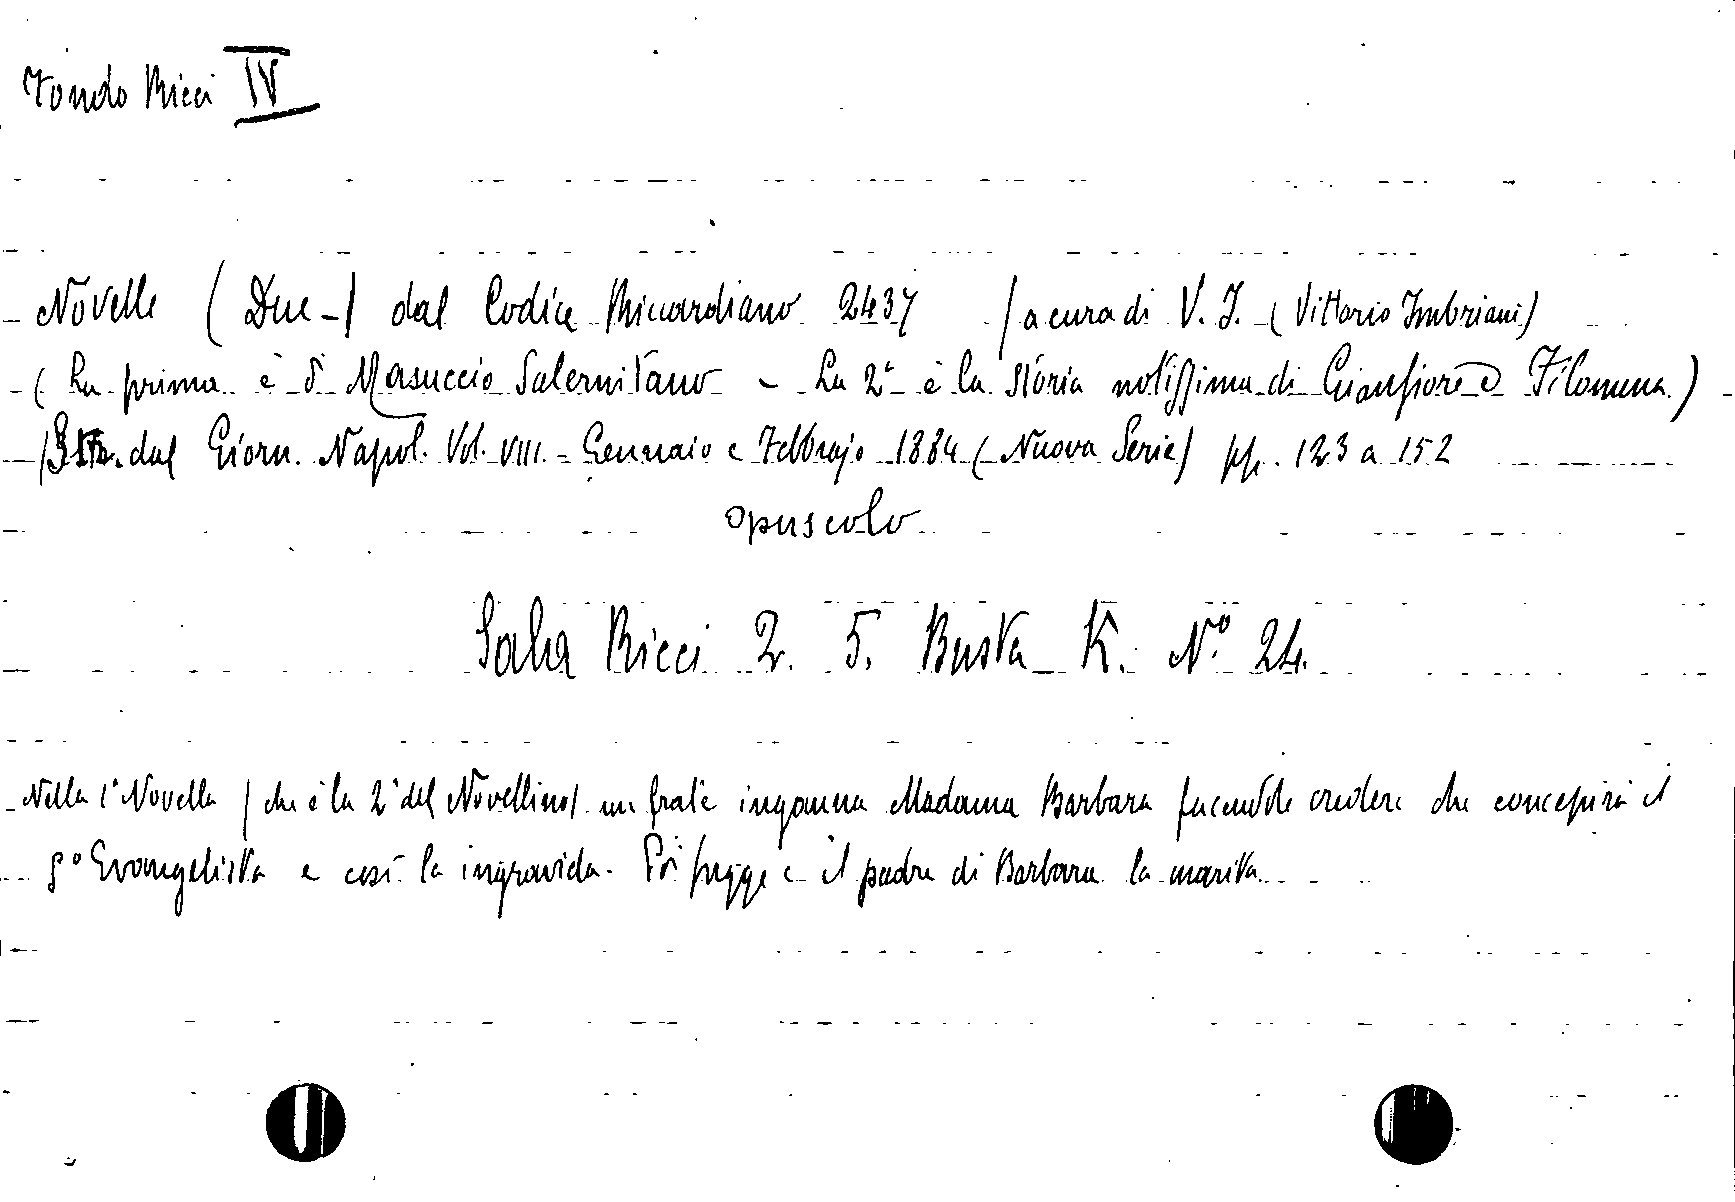 Fondo Ricci IV
Novelle (Due -) dal Codice Riccardiano 2437 / a cura di V. I. (Vittorio Imbriani)
(La prima è di Masuccio Salernitano - La 2ª è la storia notissima di Gianfiore e Filomena.)
Estr. dal Giorn. Napol. Vol. VIII. - Gennaio e Febbrajo 1884 (Nuova Serie) pp. 123 a 152
opuscolo
Sala Ricci 2. 5. Busta K. Nº 24.
Nella 1ª Novella (che è la 2ª del Novellino) un frate inganna Madama Barbara facendole credere che concepirà il
5º Evangelista e così la ingravida. Poi fugge e il padre di Barbara la marita